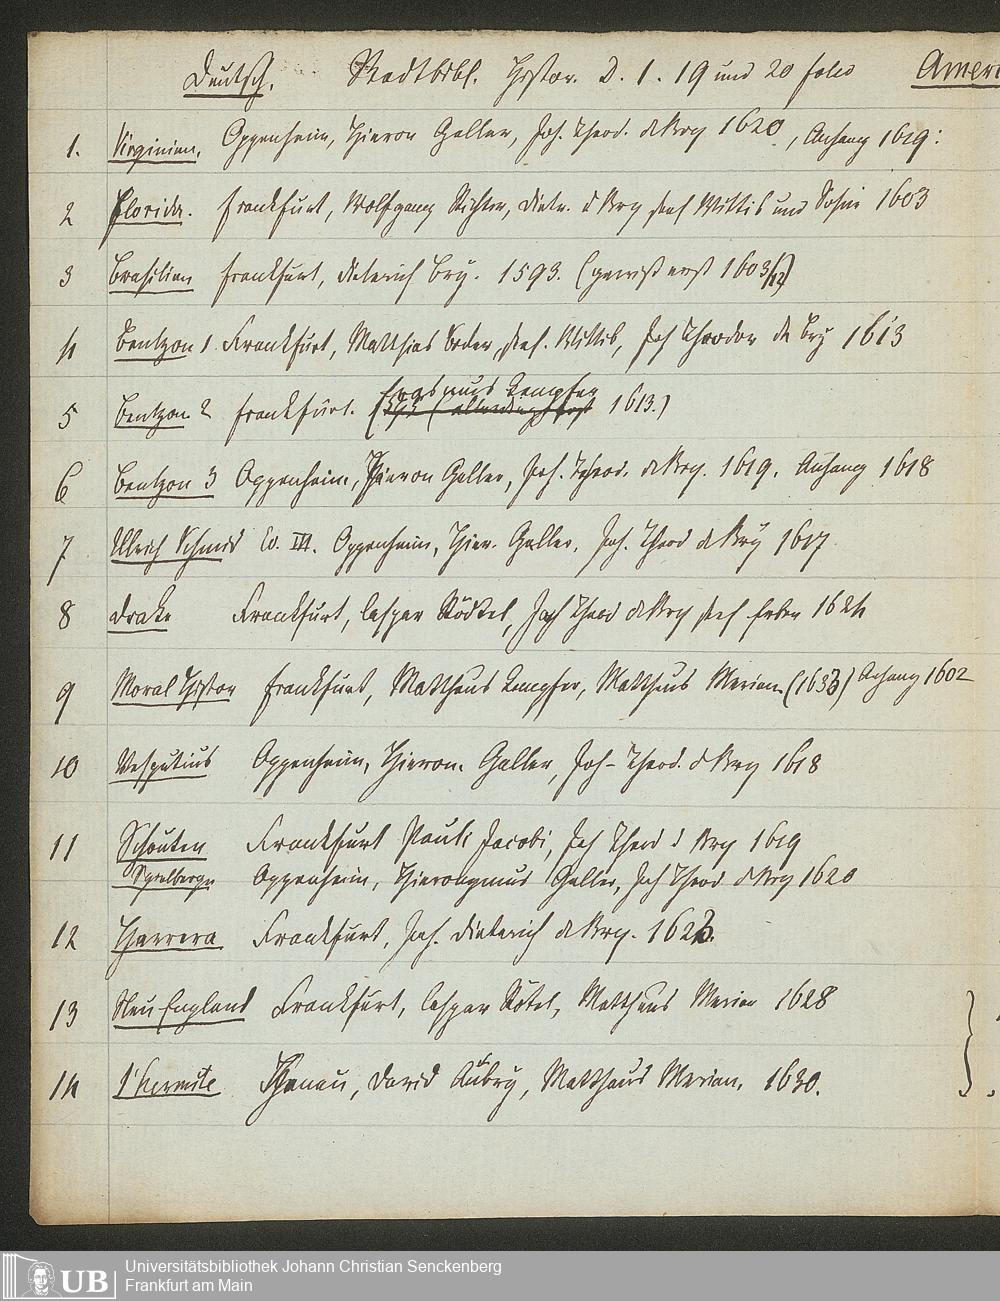 Deutsch. Stadtbibl. Histor. D. 1. 19 und 20 folio Ameri
1. Virginien. Oppenheim, Hieron Galler, Joh. Theod. de Bry 1620, Anhang 1619.
2 Florida. Frankfurt, Wolfgang Richter, Dietr. d Bry seel Wittib und Söhne 1603
3 Brasilien Frankfurt, Dieterich Bry. 1593. (gewiß erst 1603/12)
4 Bentzon 1. Frankfurt, Matthias Becker, seel. Wittib, Joh Theodor de Bry 1613
5 Bentzon 2 Frankfurt. (Erasmus Kempfer 1613.)
6 Bentzon 3 Oppenheim, Hieron Galler, Joh. Theod. de Bry. 1619. Anhang 1618
7 Ulrich Schmid Ed. III. Oppenheim, Hier. Galler, Joh. Theod de Bry 1617.
8 Drake Frankfurt, Caspar Rödtel, Joh Theod de Bry seel Erben 1624
9 Moral Histor Frankfurt, Matthäus Kempfer, Matthäus Merian. (1633) Anhang 1602
10 Vesputius Oppenheim, Hieron. Galler, Joh. Theod. d Bry 1618
11 Schouten Frankfurt Pauli Jacobi, Joh Theod d Bry 1619
Spielbergen Oppenheim, Hieronymus Galler, Joh Theod de Bry 1620
12 Herrera Frankfurt, Joh. Dieterich de Bry. 1623.
13 Neu England Frankfurt, Caspar Rötel, Matthäus Merian 1628
14 l'hermite Hanau, David Aubry, Matthäus Merian. 1630.
UB Universitätsbibliothek Johann Christian Senckenberg
Frankfurt am Main